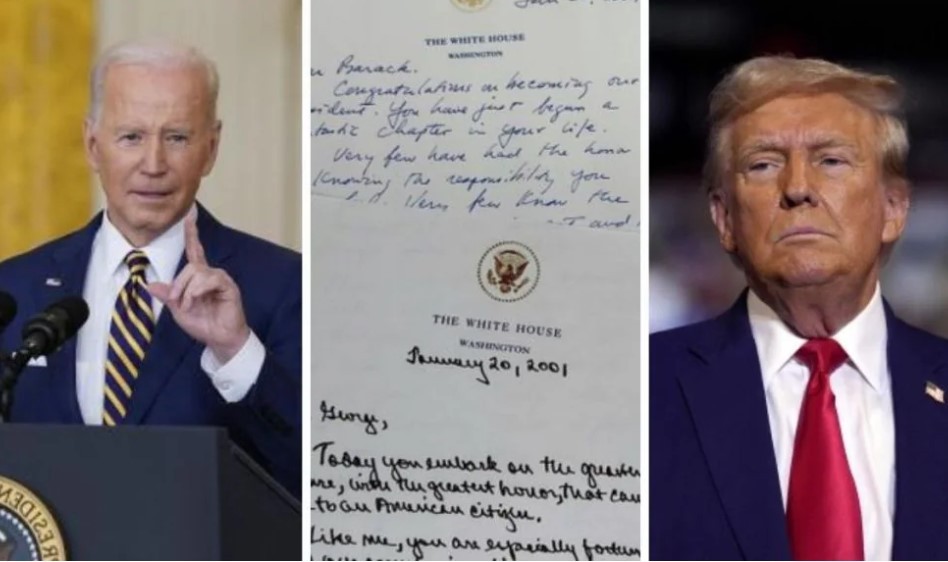 THE WHITE HOUSE
WASHINGTON
Barack.
Congratulations on becoming our
ident. You have just begun a
tastic Chapter in your life.
Very few have had the hono
Knowing the responsibility you
Very few know the
and
THE WHITE HOUSE
WASHINGTON
January 20, 2001
George,
Today you embark on the greates
re, with the greatest honor, that can
to an American citizen.
Like me, you are especially fortun
PRESIDEN